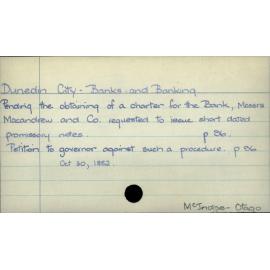 Dunedin City - Banks and Banking
Pending the obtaining of a charter for the Bank, Messrs
Macandrew and Co. requested to issue short dated
promissory notes. p 86.
Petition to governor against such a procedure. p 86
Oct 30, 1852.
McIndoe - Otago